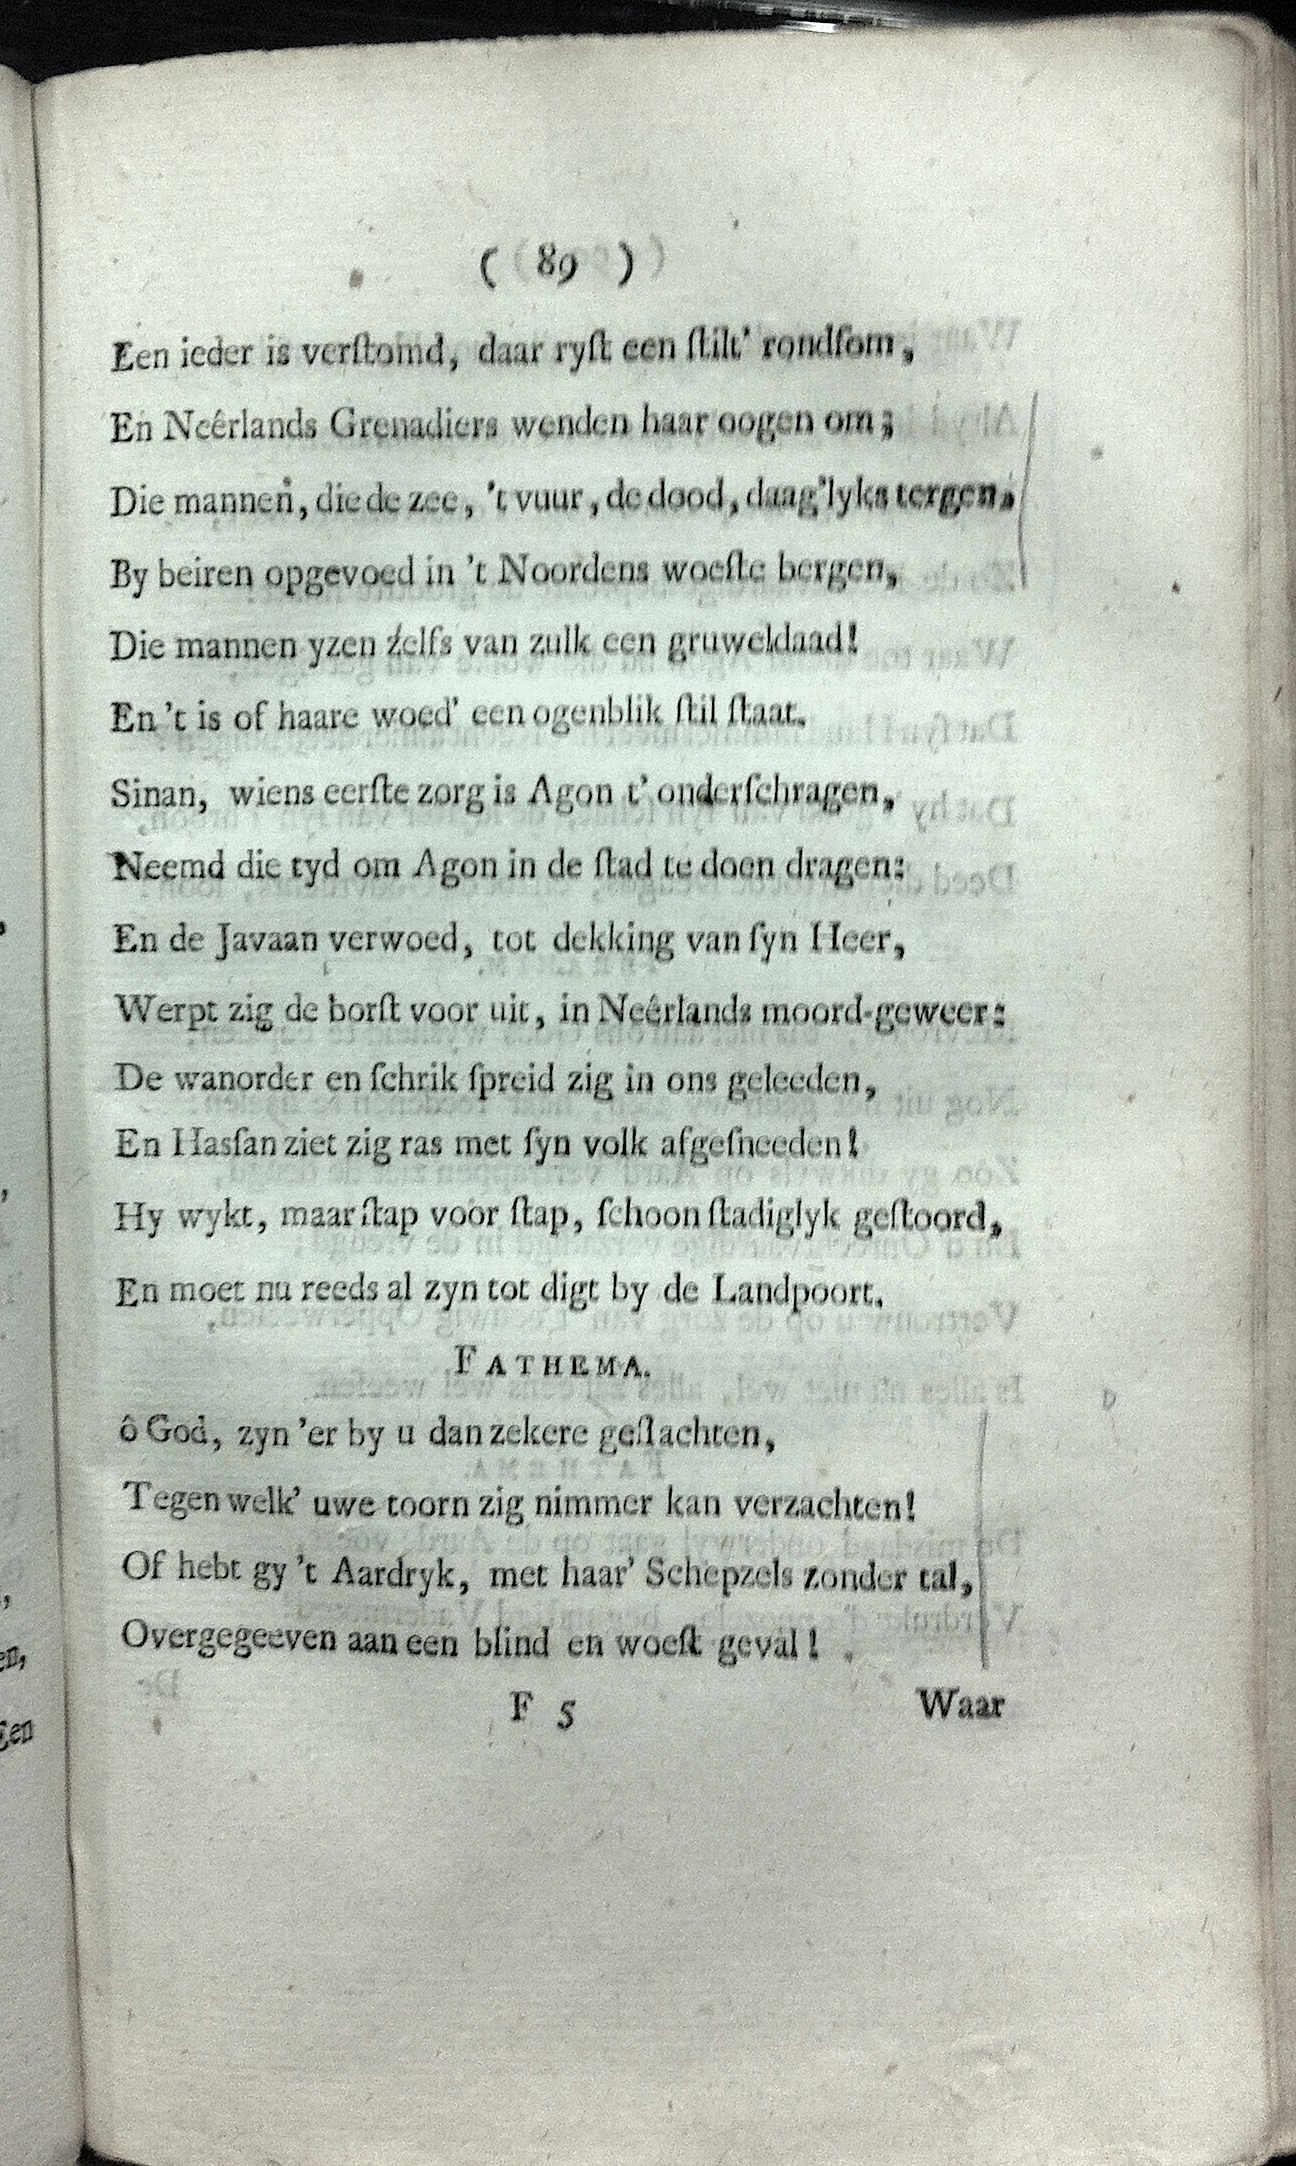 ( 89 )
Een ieder is verſtomd, daar ryſt een ſtilt' rondſom,
En Neêrlands Grenadiers wenden haar oogen om;
Die mannen, die de zee, 't vuur, de dood, daag'lyks tergen,
By beiren opgevoed in 't Noordens woeſte bergen,
Die mannen yzen zelfs van zulk een gruweldaad!
En 't is of haare woed' een ogenblik ſtil ſtaat.
Sinan, wiens eerſte zorg is Agon t' onderſchragen,
Neemd die tyd om Agon in de ſtad te doen dragen:
En de Javaan verwoed, tot dekking van ſyn Heer,
Werpt zig de borſt voor uit, in Neêrlands moord-geweer:
De wanorder en ſchrik ſpreid zig in ons geleeden,
En Hasſan ziet zig ras met ſyn volk afgeſneeden!
Hy wykt, maar ſtap voor ſtap, ſchoon ſtadiglyk geſtoord,
En moet nu reeds al zyn tot digt by de Landpoort.
FATHEMA.
ô God, zyn 'er by u dan zekere geſlachten,
Tegen welk' uwe toorn zig nimmer kan verzachten!
Of hebt gy 't Aardryk, met haar' Schepzels zonder tal,
Overgegeeven aan een blind en woeſt geval!
F 5 Waar